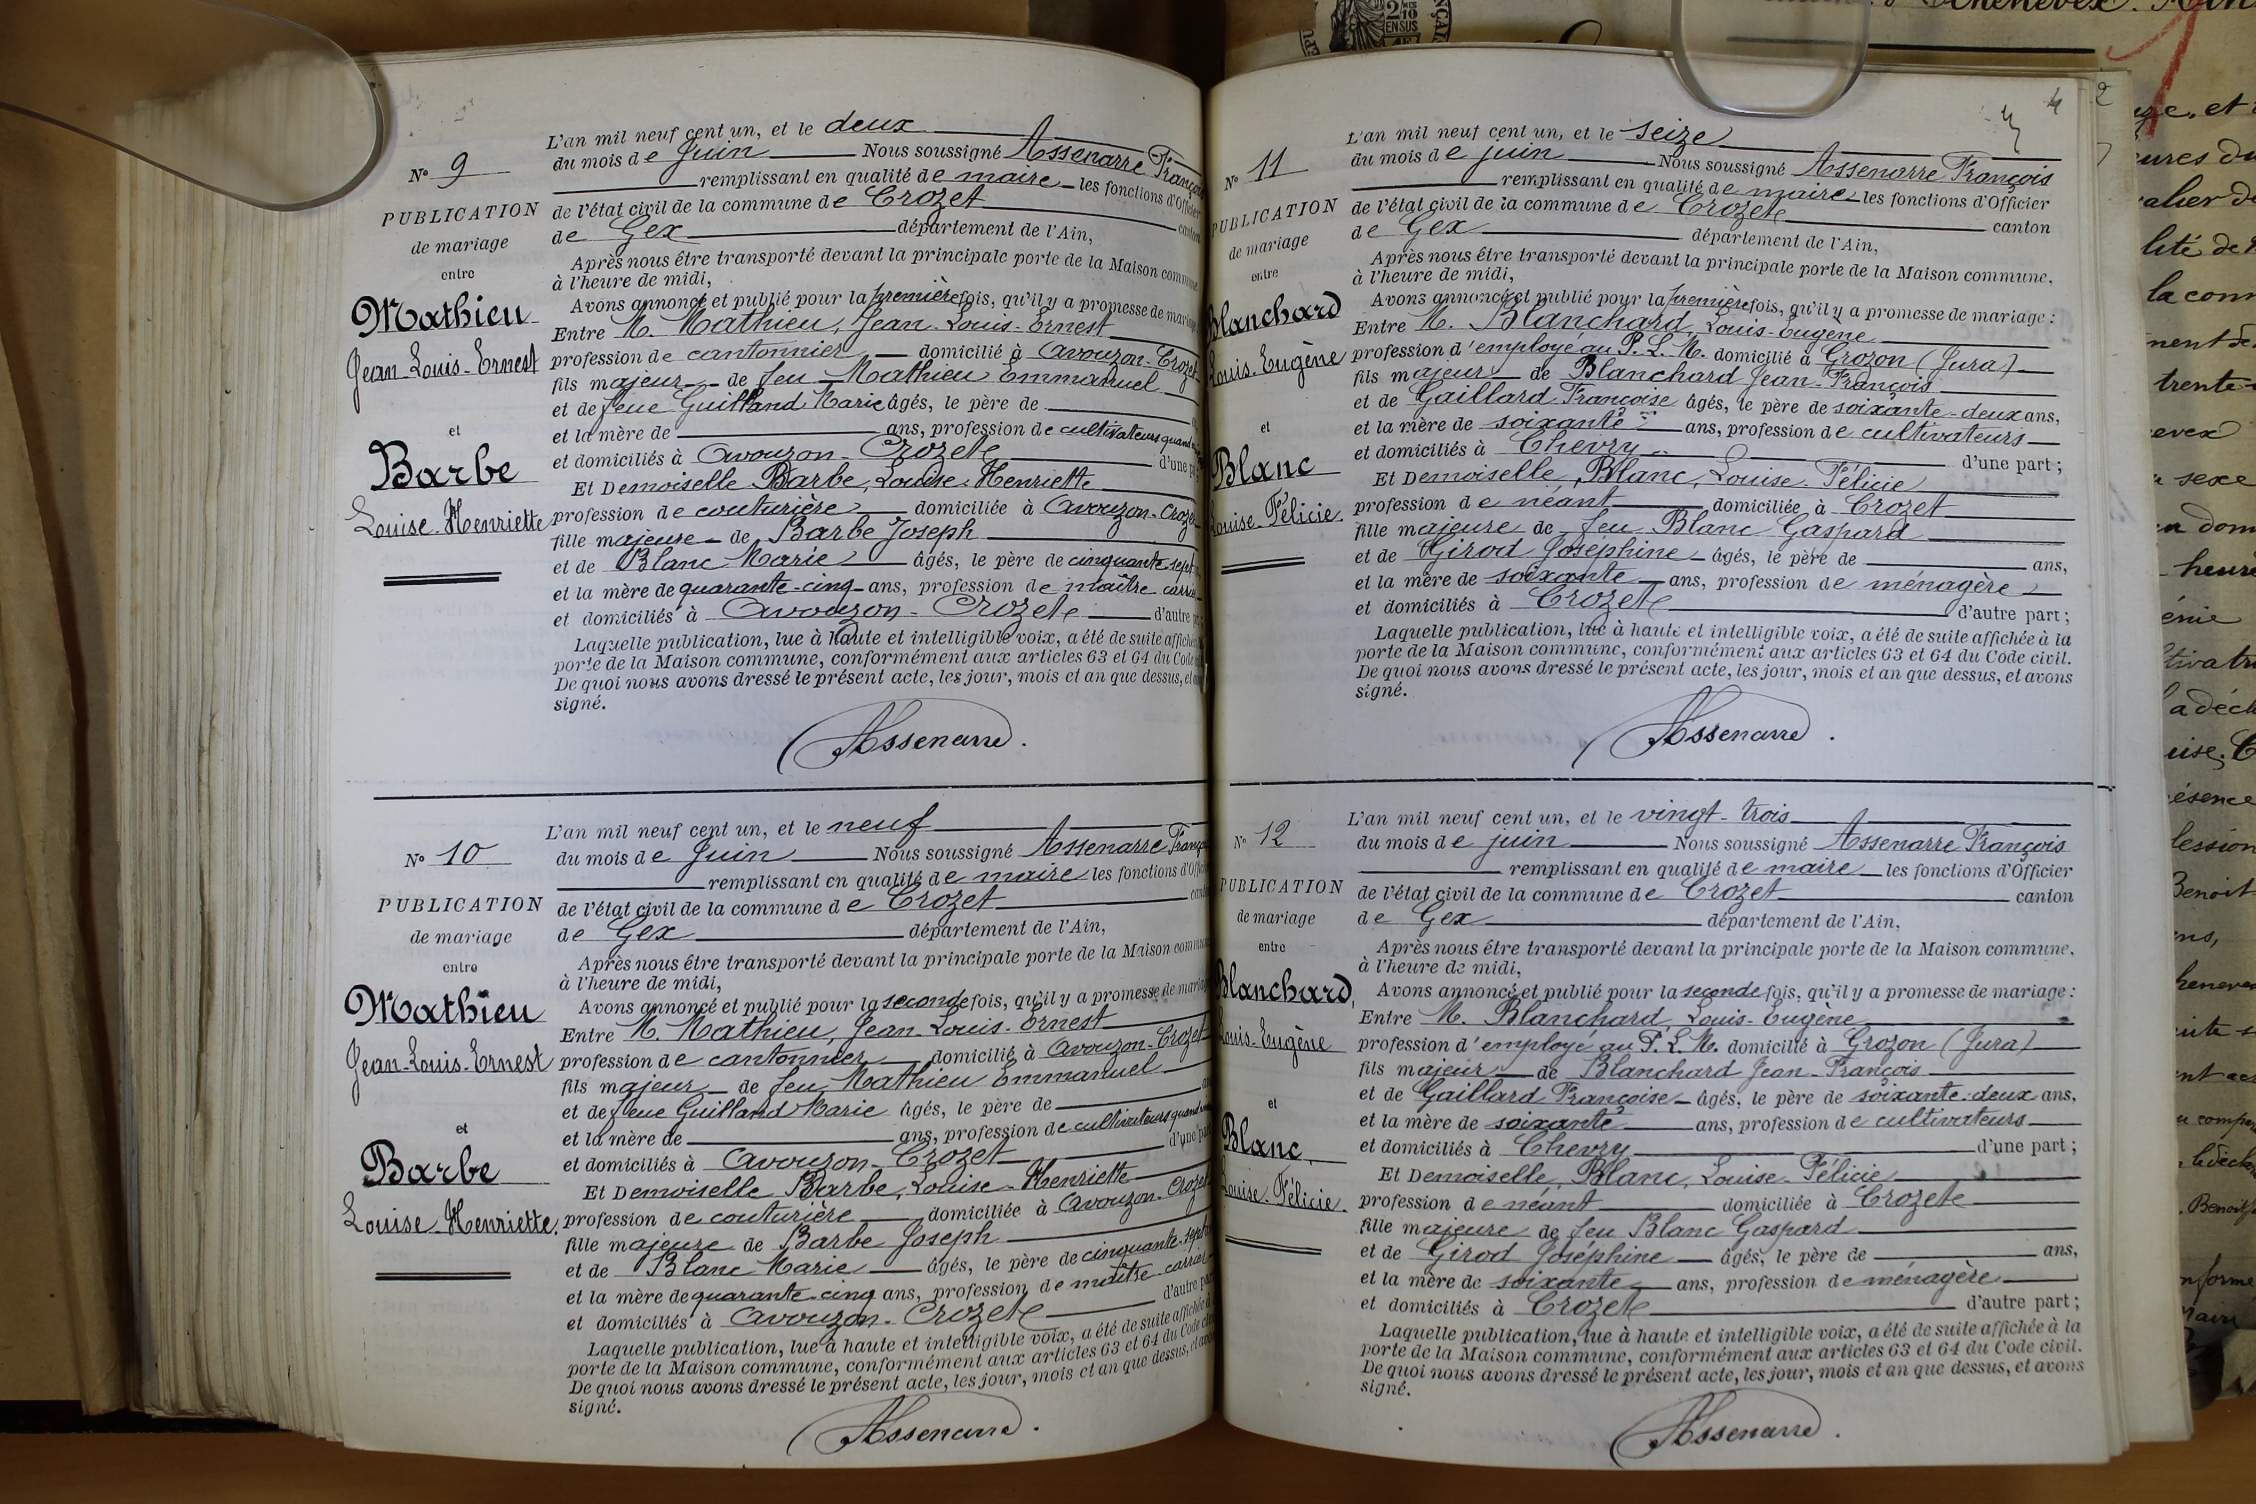 N° 9
PUBLICATION
de mariage
entre
Mathieu
Jean-Louis-Ernest
et
Barbe
Louise-Henriette
L'an mil neuf cent un, et le deux
du mois de Juin Nous soussigné Assenarre François
remplissant en qualité de maire les fonctions d'Officier
de l'état civil de la commune de Crozet canton
de Gex département de l'Ain,
Après nous être transporté devant la principale porte de la Maison commune,
à l'heure de midi,
Avons annoncé et publié pour la première fois, qu'il y a promesse de mariage
Entre M. Mathieu, Jean-Louis-Ernest
profession de cantonnier domicilié à Avouzon-Crozet
fils majeur de feu Mathieu Emmanuel
et de feue Guilland Marie âgés, le père de
et la mère de ans, profession de cultivateurs quand
et domiciliés à Avouzon-Crozet d'une
Et Demoiselle Barbe, Louise-Henriette
profession de couturière domiciliée à Avouzon-Crozet
fille majeure de Barbe Joseph
et de Blanc Marie âgés, le père de cinquante-sept
et la mère de quarante-cinq ans, profession de maître
et domiciliés à Avouzon-Crozet d'autre
Laquelle publication, lue à haute et intelligible voix, a été de suite affichée
porte de la Maison commune, conformément aux articles 63 et 64 du Code
De quoi nous avons dressé le présent acte, les jour, mois et an que dessus, et
signé.
Assenarre.
N° 10
PUBLICATION
de mariage
entre
Mathieu
Jean-Louis-Ernest
et
Barbe
Louise-Henriette.
L'an mil neuf cent un, et le neuf
du mois de Juin Nous soussigné Assenarre François
remplissant en qualité de maire les fonctions d'Officier
de l'état civil de la commune de Crozet
de Gex département de l'Ain,
Après nous être transporté devant la principale porte de la Maison commune
à l'heure de midi,
Avons annoncé et publié pour la seconde fois, qu'il y a promesse de mariage
Entre M. Mathieu, Jean-Louis-Ernest
profession de cantonnier domicilié à Avouzon-Crozet
fils majeur de feu Mathieu Emmanuel
et de feue Guilland Marie âgés, le père de
et la mère de ans, profession de cultivateurs quand
et domiciliés à Avouzon-Crozet d'une part
Et Demoiselle Barbe, Louise-Henriette
profession de couturière domiciliée à Avouzon-Crozet
fille majeure de Barbe Joseph
et de Blanc Marie âgés, le père de cinquante-sept
et la mère de quarante-cinq ans, profession de maître
et domiciliés à Avouzon-Crozet d'autre
Laquelle publication, lue à haute et intelligible voix, a été de suite affichée
porte de la Maison commune, conformément aux articles 63 et 64 du Code
De quoi nous avons dressé le présent acte, les jour, mois et an que dessus, et
signé.
Assenarre.
N° 11
PUBLICATION
de mariage
entre
Blanchard
Louis-Eugène
et
Blanc
Louise-Félicie.
L'an mil neuf cent un, et le seize
du mois de juin Nous soussigné Assenarre François
remplissant en qualité de maire les fonctions d'Officier
de l'état civil de la commune de Crozet canton
de Gex département de l'Ain,
Après nous être transporté devant la principale porte de la Maison commune,
à l'heure de midi,
Avons annoncé et publié pour la première fois, qu'il y a promesse de mariage :
Entre M. Blanchard, Louis-Eugène
profession d'employé au P. L. M. domicilié à Grozon (Jura)
fils majeur de Blanchard Jean-François
et de Gaillard Françoise âgés, le père de soixante-deux ans,
et la mère de soixante ans, profession de cultivateurs
et domiciliés à Chevry d'une part ;
Et Demoiselle, Blanc, Louise-Félicie
profession de néant domiciliée à Crozet
fille majeure de feu Blanc Gaspard
et de Girod Joséphine âgés, le père de ans,
et la mère de soixante ans, profession de ménagère
et domiciliés à Crozet d'autre part ;
Laquelle publication, lue à haute et intelligible voix, a été de suite affichée à la
porte de la Maison commune, conformément aux articles 63 et 64 du Code civil.
De quoi nous avons dressé le présent acte, les jour, mois et an que dessus, et avons
signé.
Assenarre.
N° 12
PUBLICATION
de mariage
entre
Blanchard,
Louis-Eugène
et
Blanc,
Louise-Félicie.
L'an mil neuf cent un, et le vingt-trois
du mois de juin Nous soussigné Assenarre François
remplissant en qualité de maire les fonctions d'Officier
de l'état civil de la commune de Crozet canton
de Gex département de l'Ain,
Après nous être transporté devant la principale porte de la Maison commune,
à l'heure de midi,
Avons annoncé et publié pour la seconde fois, qu'il y a promesse de mariage :
Entre M. Blanchard, Louis-Eugène
profession d'employé au P. L. M. domicilié à Grozon (Jura)
fils majeur de Blanchard Jean-François
et de Gaillard Françoise âgés, le père de soixante-deux ans,
et la mère de soixante ans, profession de cultivateurs
et domiciliés à Chevry d'une part ;
Et Demoiselle, Blanc, Louise-Félicie
profession de néant domiciliée à Crozet
fille majeure de feu Blanc Gaspard
et de Girod Joséphine âgés, le père de ans,
et la mère de soixante ans, profession de ménagère
et domiciliés à Crozet d'autre part ;
Laquelle publication, lue à haute et intelligible voix, a été de suite affichée à la
porte de la Maison commune, conformément aux articles 63 et 64 du Code civil.
De quoi nous avons dressé le présent acte, les jour, mois et an que dessus, et avons
signé.
Assenarre.